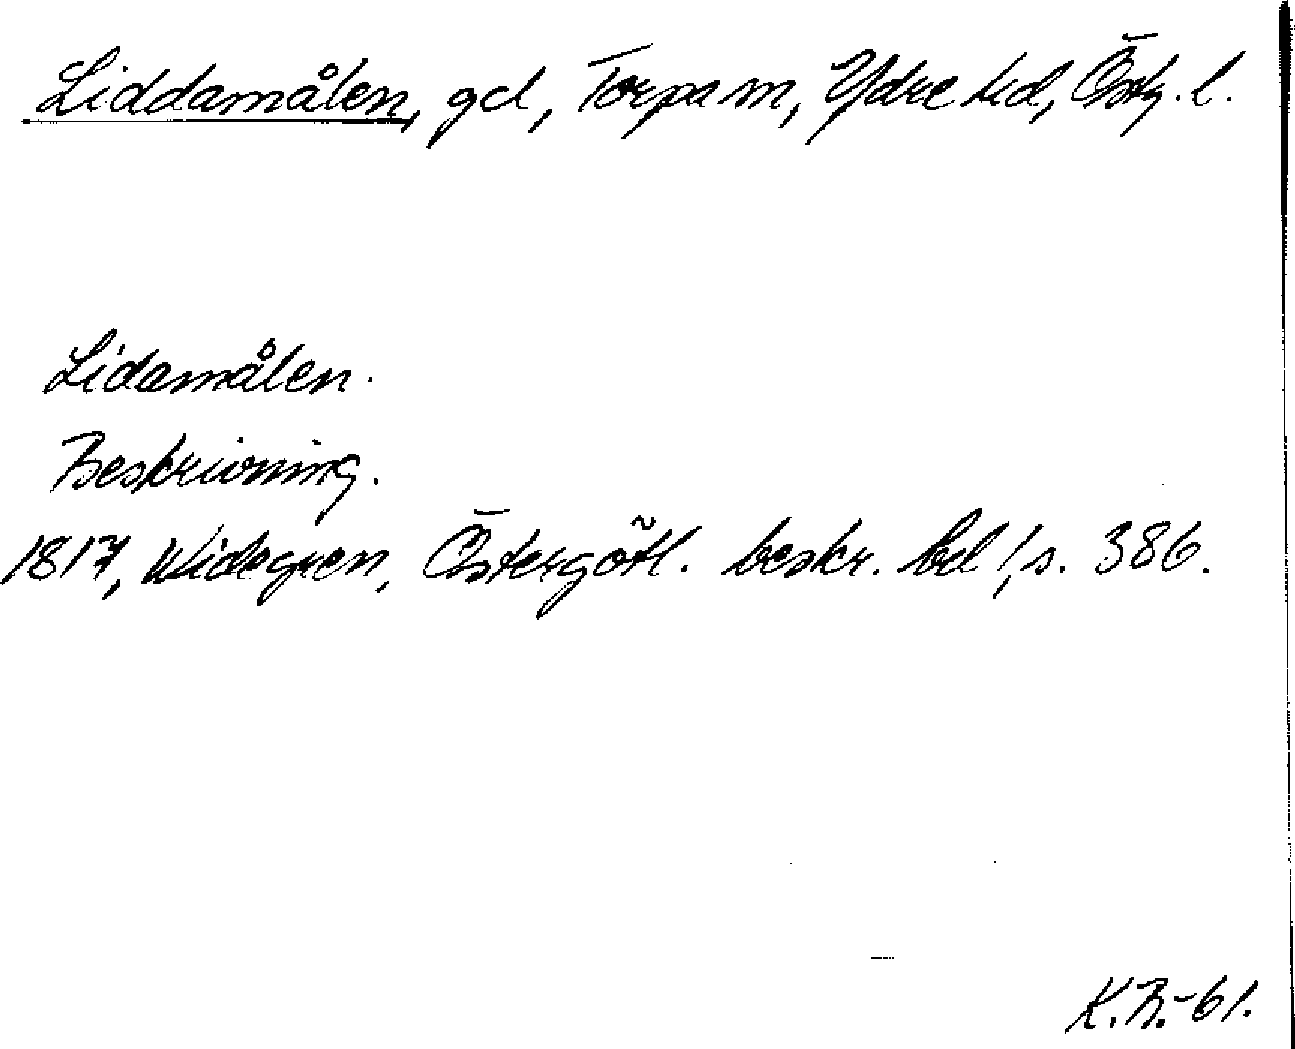 Liddamålen, gd, Torpa sn, Ydre hd, Östg. l.
Lidamålen.
Beskrivning.
1817, Widegren, Östergötl. beskr. bd 1, s. 386.
K.R.-61.